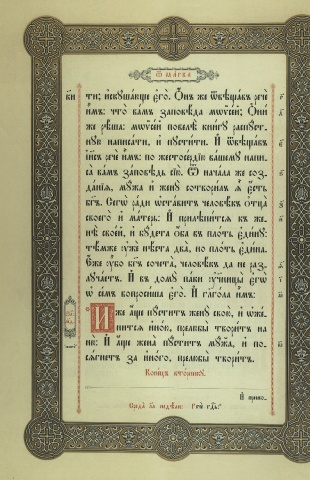 Ѿ ма́рка
ти; и҆скꙋша́юще є҆го̀. Ѻ҆́нъ же ѿвѣща́въ речѐ
и҆̀мъ: что̀ ва́мъ заповѣ́да мѡѷсе́й; Ѻ҆ни́
же рѣ́ша: мѡѷсе́й повелѣ̀ кни́гꙋ распꙋст-
нꙋю написа́ти, и҆ пꙋсти́ти. И҆ ѿвѣща́въ
і҆и҃съ речѐ и҆̀мъ: по жестосе́рдїю ва́шемꙋ написа̀
ва́мъ за́повѣдь сїю̀. Ѿ нача́ла же соз-
да́нїѧ, мꙋ́жа и҆ женꙋ̀ сотвори́лъ ѧ҆̀ є҆́сть
бг҃ъ. Сегѡ̀ ра́ди ѡ҆ста́витъ человѣ́къ ѻ҆тца̀
своего̀ и҆ ма́терь: И҆ прилѣпи́тсѧ къ же-
нѣ̀ свое́й, и҆ бꙋ́дета ѻ҆́ба въ пло́ть є҆ди́нꙋ:
тѣ́мже ᲂу҆жѐ нѣ́ста два̀, но пло́ть є҆ди́на.
Є҆́же ᲂу҆̀бо бг҃ъ сочета̀, человѣ́къ да не раз-
лꙋча́етъ. И҆ въ домꙋ̀ па́ки ᲂу҆чн҃цы̀ є҆гѡ̀
ѡ҆ се́мъ вопроси́ша є҆го̀. И҆ гл҃го́ла и҆̀мъ:
И҆́же а҆́ще пꙋ́ститъ женꙋ̀ свою̀, и҆ ѡ҆же́-
нитсѧ и҆но́ю, прелюбы̀ твори́тъ на
ню̀: И҆ а҆́ще жена̀ пꙋ́ститъ мꙋ́жа, и҆ по-
сѧ́гнетъ за и҆но́го, прелюбы̀ твори́тъ.
Коне́цъ вто́рникꙋ.
И҆ прино-